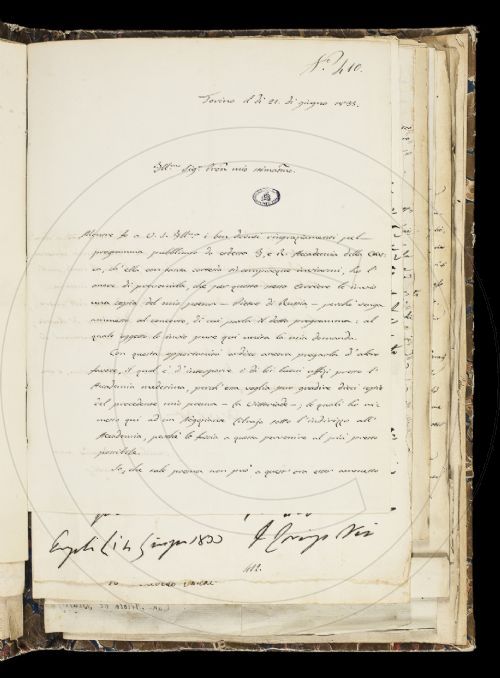 N.° 410.
Torino il dì 21. di giugno 1833.
Ill.mo Sig. Pron mio stimatmo.
Mentre fo a V. S. Ill.ma i ben dovuti ringraziamenti pel
programma pubblicato da codesta I. e R. Accademia della Crus-
ca, ch'ella con tanta cortesia si compiacque inviarmi, ho l'
onore di prevenirla, che per questo stesso Corriere le invio
una copia del mio poema — Pietro di Russia — perchè venga
ammesso al concorso, di cui parla il detto programma: al
quale oggetto le invio pure qui unita la mia domanda.
Con questa opportunità ardisco ancora pregarla d'altro
favore, il qual è d'interporre i di lei buoni uffizi presso l'
Accademia medesima, perchè ora voglia pur gradire dieci copie
del precedente mio poema — la Vittoriade —, le quali ho ri-
messo qui ad un Negoziante sotto l'indirizzo all'
Accademia, perchè le faccia a questa pervenire al più presto
possibile.
So, che tale poema non può a quest'ora esser ammesso
Giugno 1833
412.